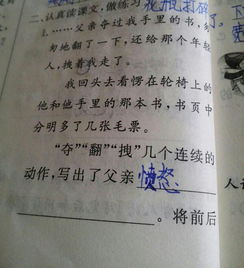 二、认真读课文，做练习
1. ……父亲夺过我手里的书，匆
匆地翻了一下，还给那个年轻
人，拽着我走了。
我回头去看愣在轮椅上的
他和他手里的那本书，书页中
分明多了几张毛票。
“夺”“翻”“拽”几个连续的
动作，写出了父亲 愤怒
。将前后